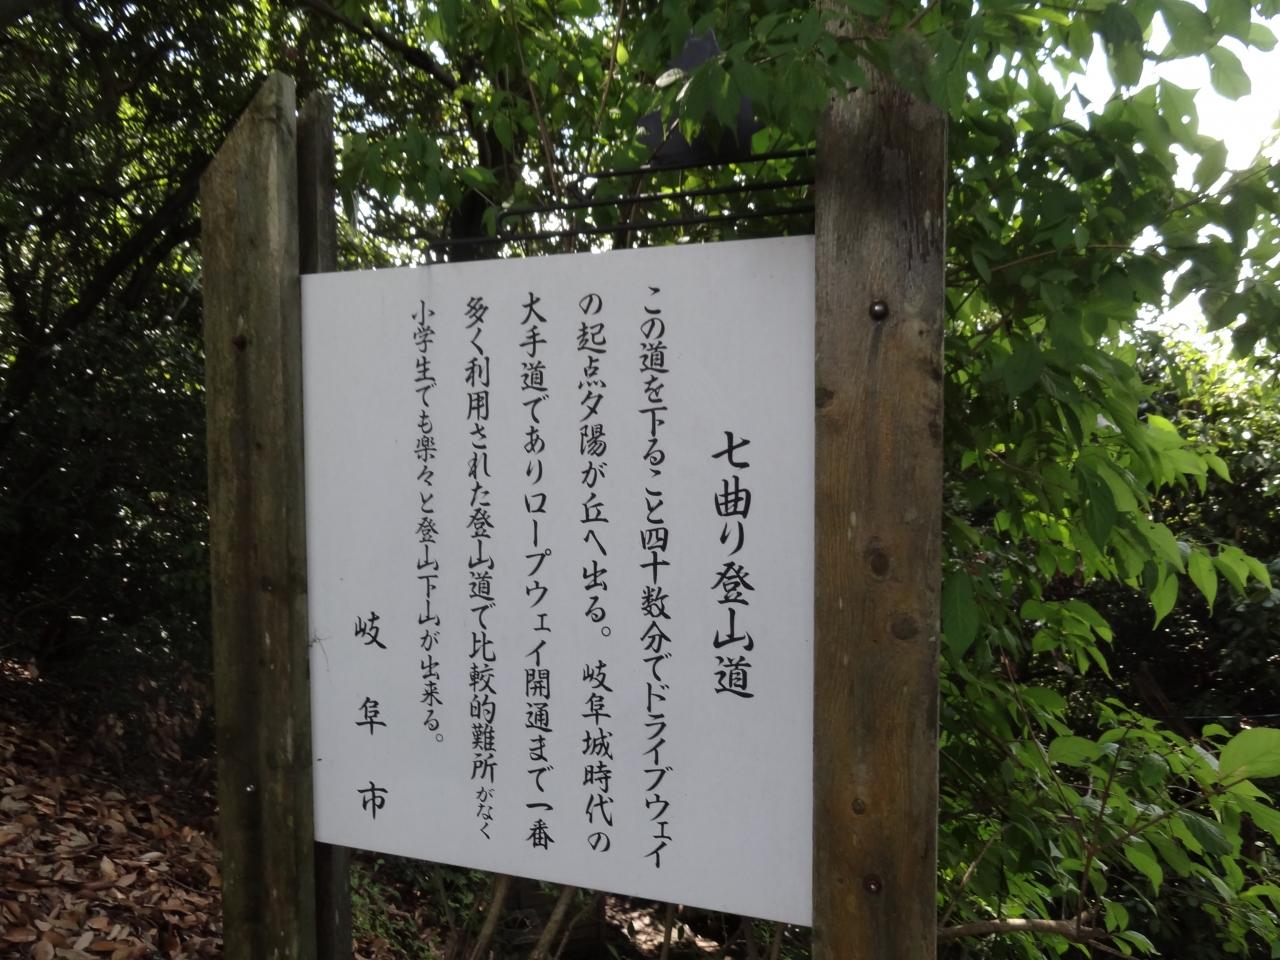 七曲り登山道
この道を下ること四十数分でドライブウェイ
の起点夕陽が丘へ出る。岐阜城時代の
大手道でありロープウェイ開通まで一番
多く利用された登山道で比較的難所がなく
小学生でも楽々と登山下山が出来る。
岐阜市